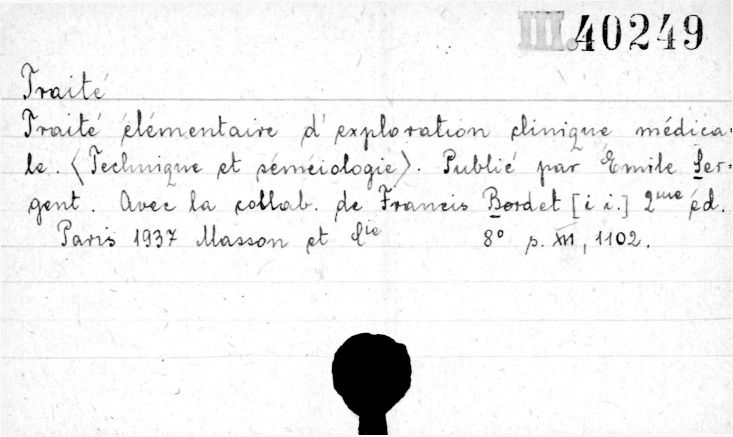 III.40249
Traité
Traité élémentaire d'exploration clinique médica=
le. <Technique et séméiologie>. Publié par Emile Ser=
gent. Avec la collab. de Francis Bordet [i i.] 2me éd.
Paris 1937 Masson et Cie 8° p. XII, 1102.